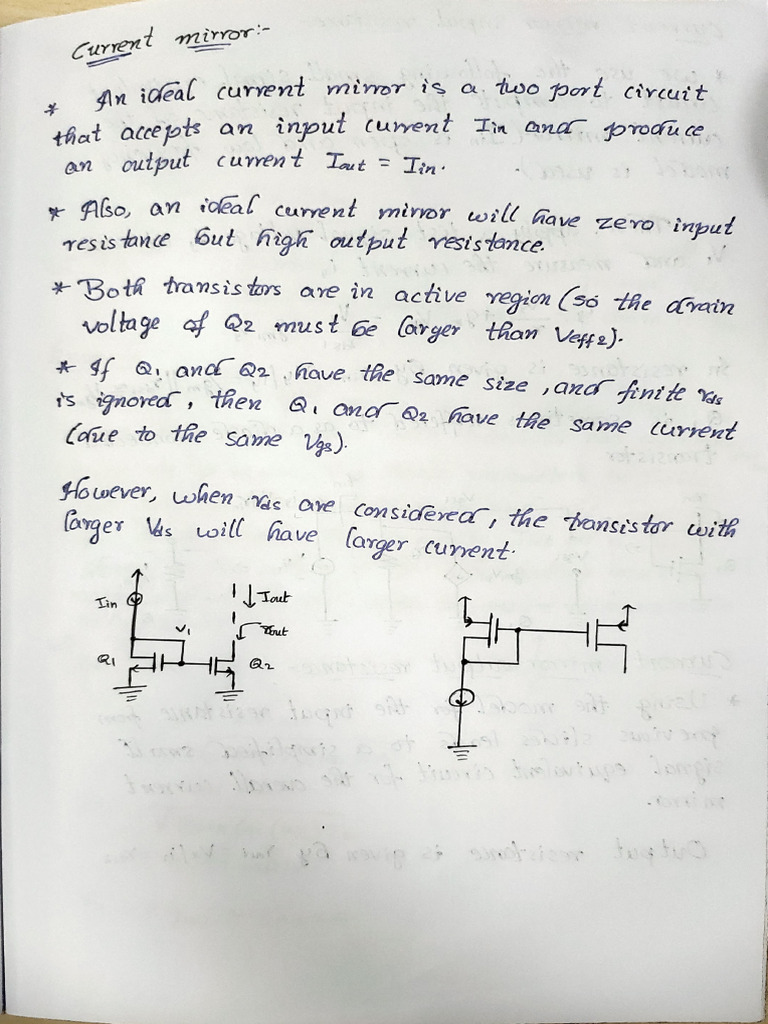 Current mirror:-
* An ideal current mirror is a two port circuit
that accepts an input current Iin and produce
an output current Iout = Iin.
* Also, an ideal current mirror will have zero input
resistance but high output resistance.
* Both transistors are in active region (so the drain
voltage of Q2 must be larger than Veff2).
* If Q1 and Q2 have the same size, and finite rds
is ignored, then Q1 and Q2 have the same current
(due to the same Vgs).
However, when rds are considered, the transistor with
larger Vds will have larger current.
Iin
Iout
V1
rout
Q1
Q2